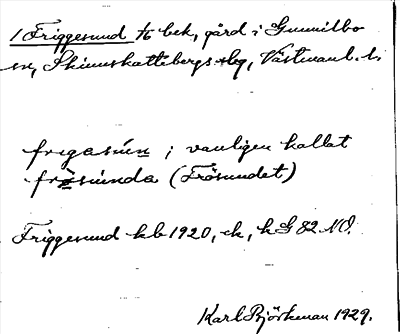 1 Friggesund tb bek, gård i Gunnilbo
sn, Skinnskattebergs hg, Västmanl. l.
frigasún ; vanligen kallat
frösúnda (Frösundet)
Friggesund kb 1920, ek, kG 82 NO.
Karl Björkman 1929.